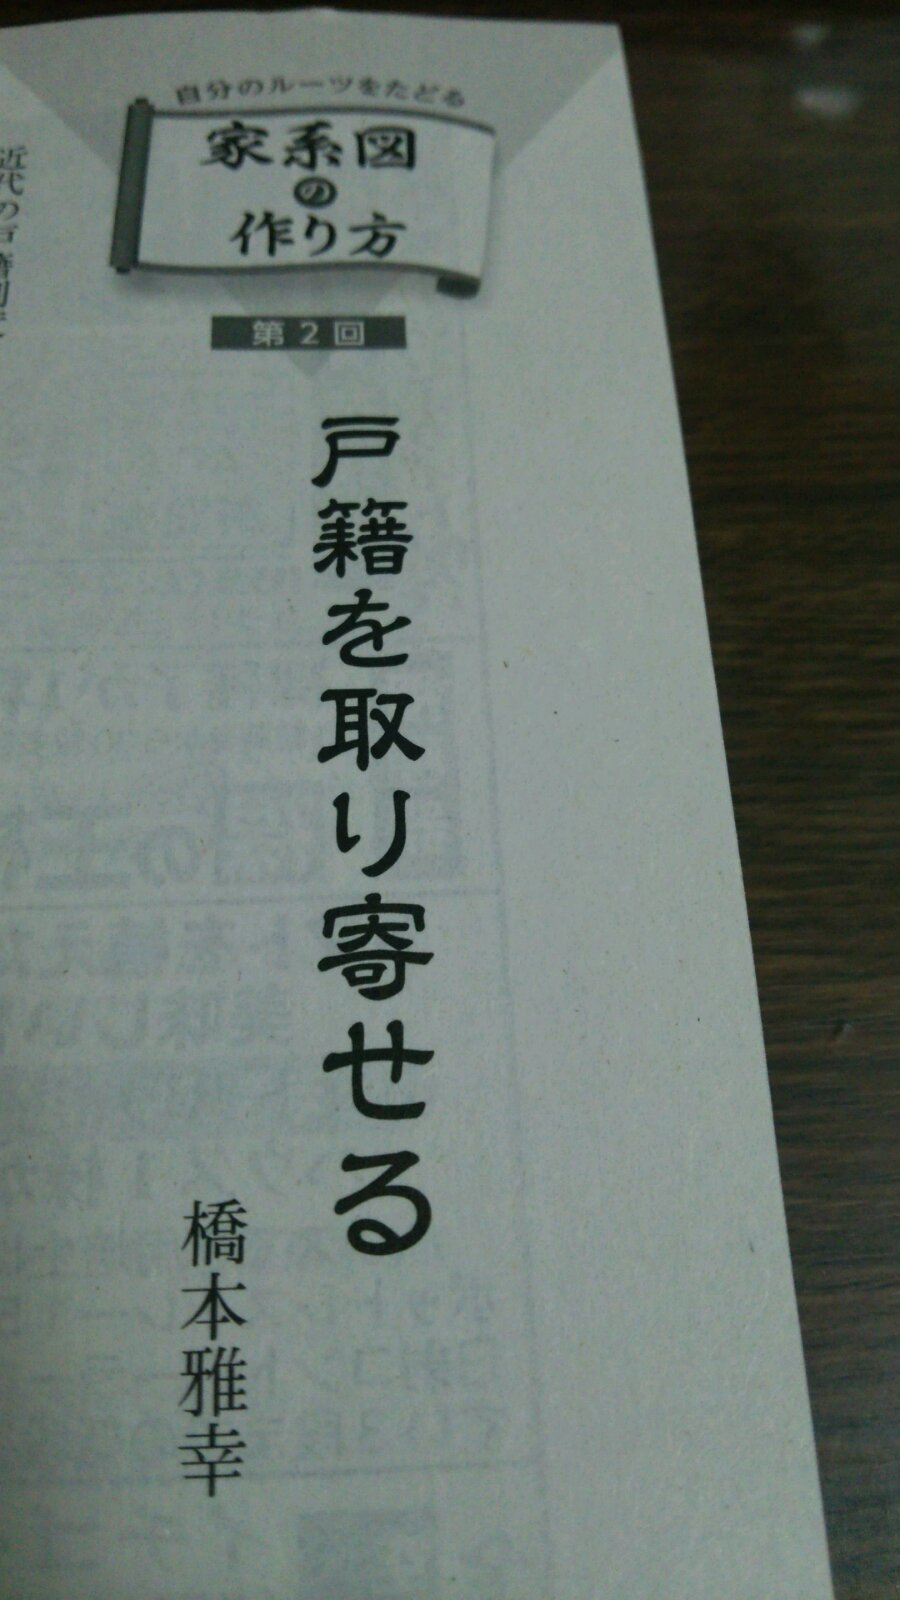 自分のルーツをたどる
家系図
の
作り方
第2回
戸籍を取り寄せる
橋本雅幸
近代の戸籍制